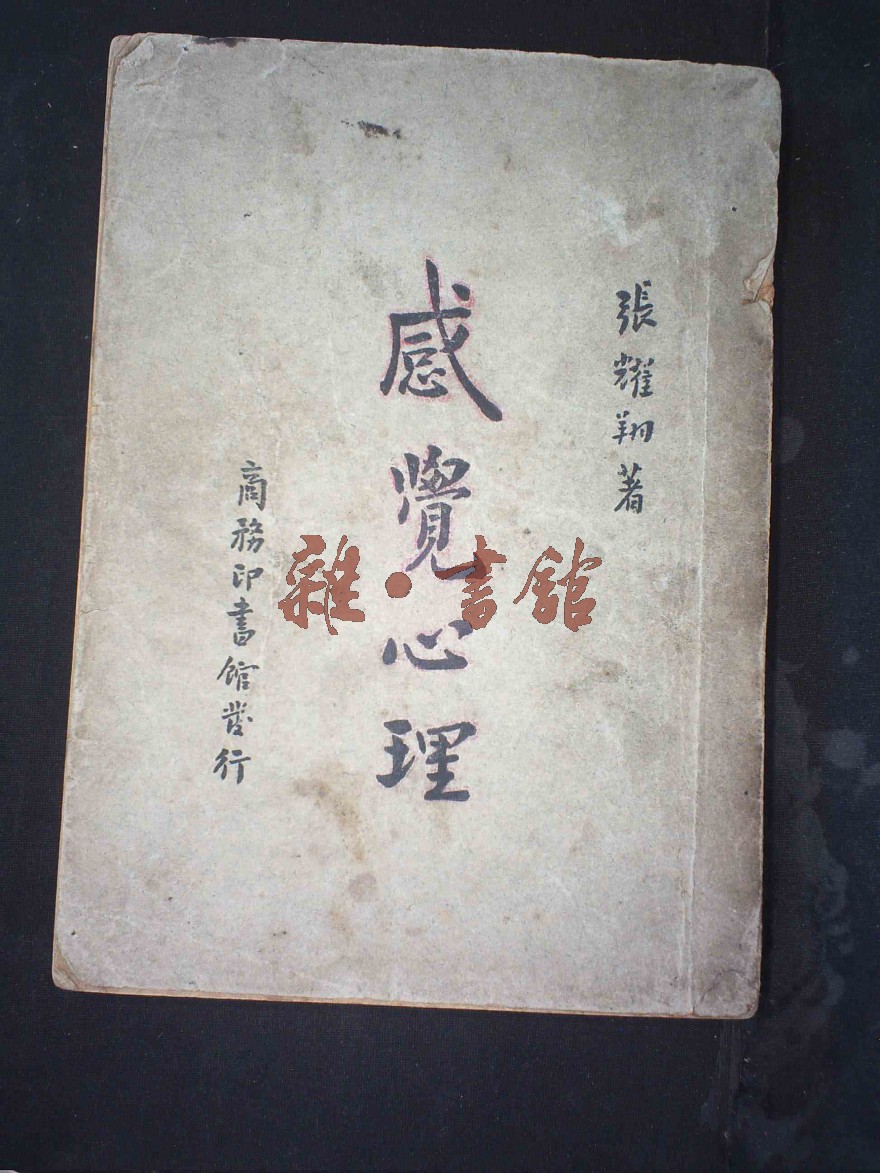 張耀翔著
感覺心理
商務印書館發行
雜·書館